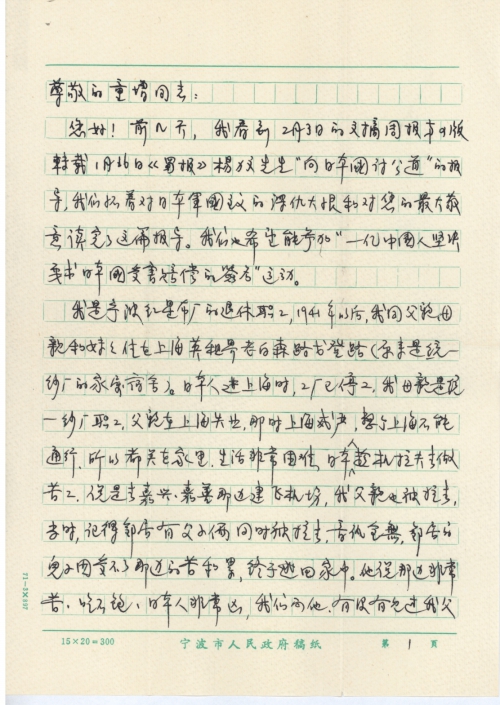 尊敬的童增同志：
您好！前几天，我看到2月3日的文摘周报第9版
转载1月26日《蜀报》杨文先生"向日本国讨公道"的报
导，我们怀着对日本军国主义的深仇大恨和对您的最大敬
意读完了这篇报导。我们也希望能参加"一亿中国人坚决
要求日本国受害赔偿的签名"运动。
我是宁波红星布厂的退休职工，1941年以后，我同父亲母
亲和妹妹住在上海英租界老白森路戈登路（原来是统一
纱厂的家属宿舍）。日本人进上海时，工厂已停工，我母亲是统
一纱厂职工，父亲在上海失业，那时上海戒严，整个上海不能
通行，所以都关在家里，生活非常困难，日本趁机拉夫去做
苦工，说是去嘉兴、嘉善那边建飞机场，我父亲也被拉去，
去时，记得邻舍有父子俩同时被拉去，音讯全无，邻舍的
儿子因受不了那边的苦和累，终于逃回家中。他说那边非常
苦，吃不饱，日本人非常凶，我们问他，有没有见过我父
15×20=300
宁波市人民政府稿纸
第 1 页